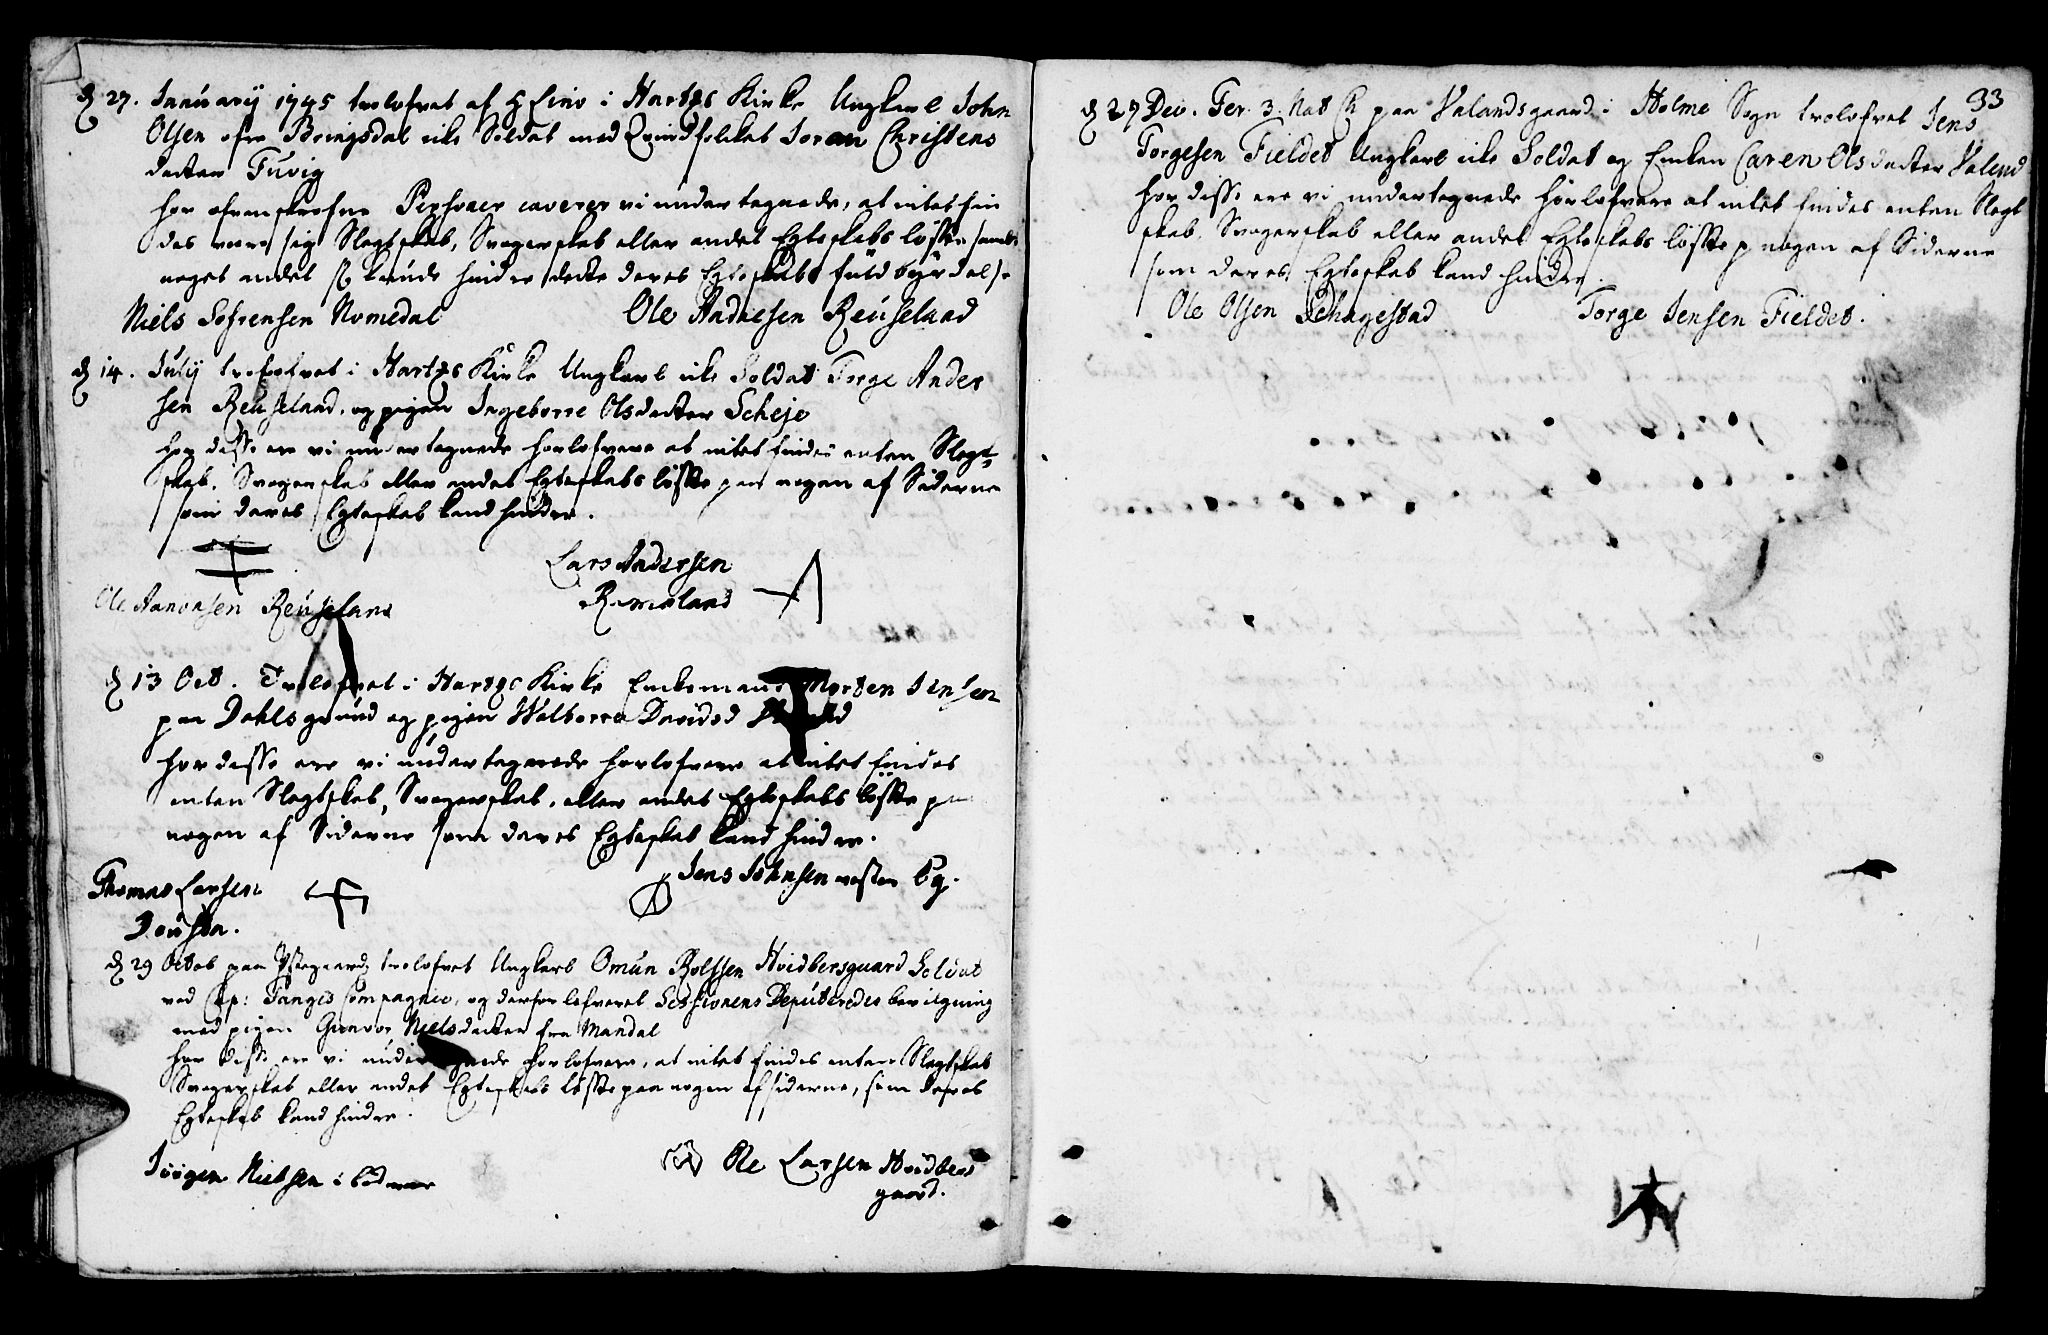 d 27. January 1745 trolofvet af H Lino i Hartgs Kirke Ungkarl John
Olsen ofre Bringsdal icke Soldat med Qvindfolket Joran Christens
datter Tuvig
for ofvenskrefne Personer caverer vi undertegnede, at intet fin
des være sig Slegtskab, Svogerskab eller andet Egteskabs løfte samt
noget andet som kunde hindre dette deres Egteskabs fuldbyrdelse
Niels Sofrensen Nomedal Ole Andresen Reuseland
d 14. July trolofvet i Hartgs Kirke Ungkarl icke Soldat Torge Ander
sen Reuseland, og pigen Ingeborre Olsdatter Scheje
for disse ere vi undertegnede forlofvere at intet findes enten Slegt
skab, Svogerskab eller andet Egteskabs løfte paa nogen af Siderne
som deres Egteskab kand hindre.
Lars Andersen
Ole Aanonsen Reuseland
d 13 Oct. Trolofvet i Hartgs Kirke Enkemand Morten Jensen
paa Dahlsgrund og pigen Wolborre Davidsd
for disse ere vi undertegnede forlofvere at intet findes
enten Slegtskab, Svogerskab, eller andet Egteskabs løfte paa
nogen af Siderne som deres Egteskab kand hindre.
Thomas Larsen Jens Johnsen
d 29 Octob paa trolofvet Ungkarl Omun Rolfsen Hvidbersgaard Soldat
ved Cap: Tangis Compagnie, og derfor lefveret Sessionens Deputeredes bevilgning
med pigen Gunvor Nielsdatter fra Mandal
for disse ere vi undertegnede forlofvere, at intet findes enten Slegtskab
Svogerskab eller andet Egteskabs løfte paa nogen af siderne, som deres
Egteskab kand hindre.
Jørgen Nielsen i Ole Larsen Hvidbers
gaard.
33
d 29 Dev. Fer. 3. Nat Ch paa Valandsgaard i Holme Sogn trolofvet Jens
Torgesen Fieldet Ungkarl icke Soldat og Enken Caren Olsdatter Valand
for disse ere vi undertegnede forlofvere at intet findes enten Slegt
skab, Svogerskab eller andet Egteskabs løfte p nogen af Siderne
som deres Egteskab kand hindre.
Ole Olsen Øehagestad Torge Jensen Fieldet.